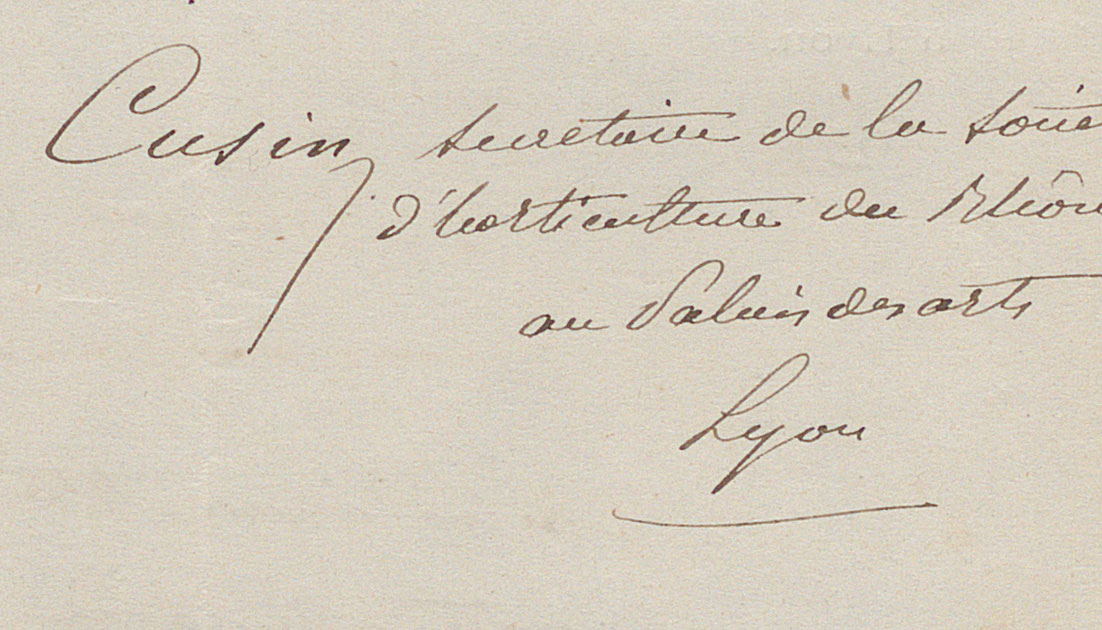 Cusin secretaire de la Socié
d'horticulture du Rhôn
au Palais des arts
Lyon